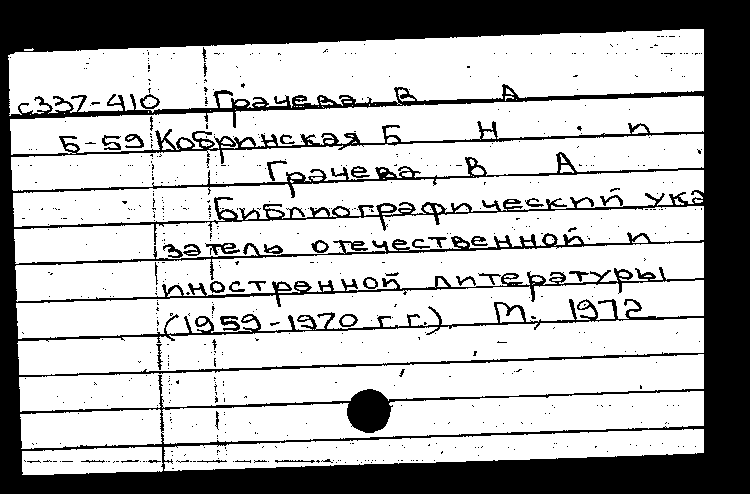 с337-410 Грачева, В А
Б-59 Кобринская Б Н. и
Грачева, В А
Библиографический ука
затель отечественной и
иностранной литературы
(1959-1970 г.г.) М., 1972